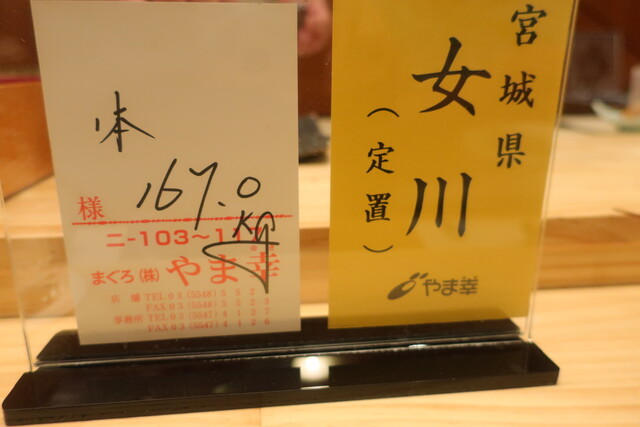 本
167.0
KG
様
二-103〜
まぐろ(株)やま幸
店舗 TEL 03 (5548) 5
FAX 03 (5548) 5
事務所 TEL 03 (5547) 4
FAX 03 (5547) 4
宮城県
女川
(定置)
やま幸